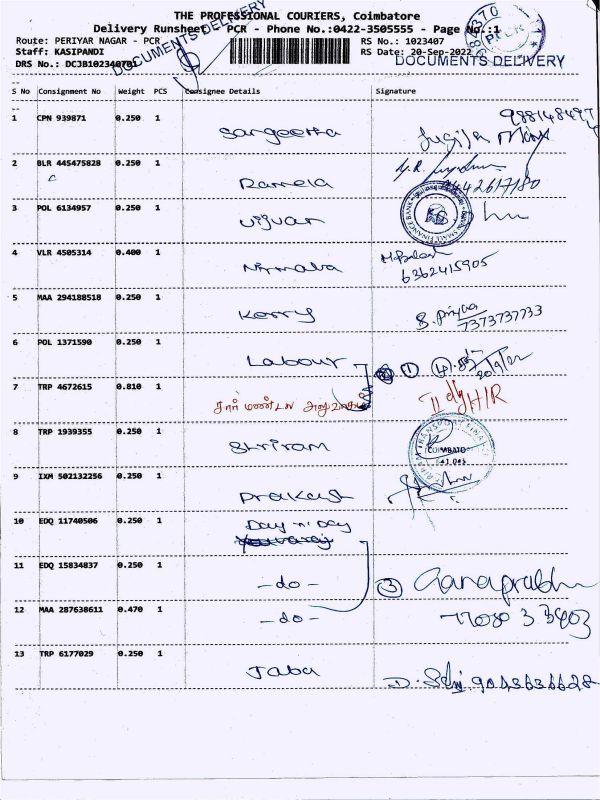 THE PROFESSIONAL COURIERS, Coimbatore
Delivery Runsheet - PCR - Phone No.:0422-3505555 - Page No.:1
Route: PERIYAR NAGAR - PCR
RS No.: 1023407
Staff: KASIPANDI
RS Date: 20-Sep-2022
DRS No.: DCJB102340701
DOCUMENTS DELIVERY
DOCUMENTS DELIVERY
S No Consignment No Weight PCS Consignee Details Signature
1 CPN 939871 0.250 1 Sangeetha
2 BLR 445475828 0.250 1 Ramela
9442617180
3 POL 6134957 0.250 1 Vijvan
4 VLR 4505314 0.400 1 Nirmala
6362415905
5 MAA 294188518 0.250 1 Kerry S. Priyaa
7373737733
6 POL 1371590 0.250 1 Labour 1 4 20/9/22
7 TRP 4672615 0.810 1 சார் மண்டல
8 TRP 1939355 0.250 1 Shriram
COIMBATO
641 045
9 IXM 502132256 0.250 1 Prakash
10 EDQ 11740506 0.250 1 Day n' Day
11 EDQ 15834837 0.250 1 - do - 3 Ganaprabhu
12 MAA 287638611 0.470 1 - do -
13 TRP 6177029 0.250 1 Jaba